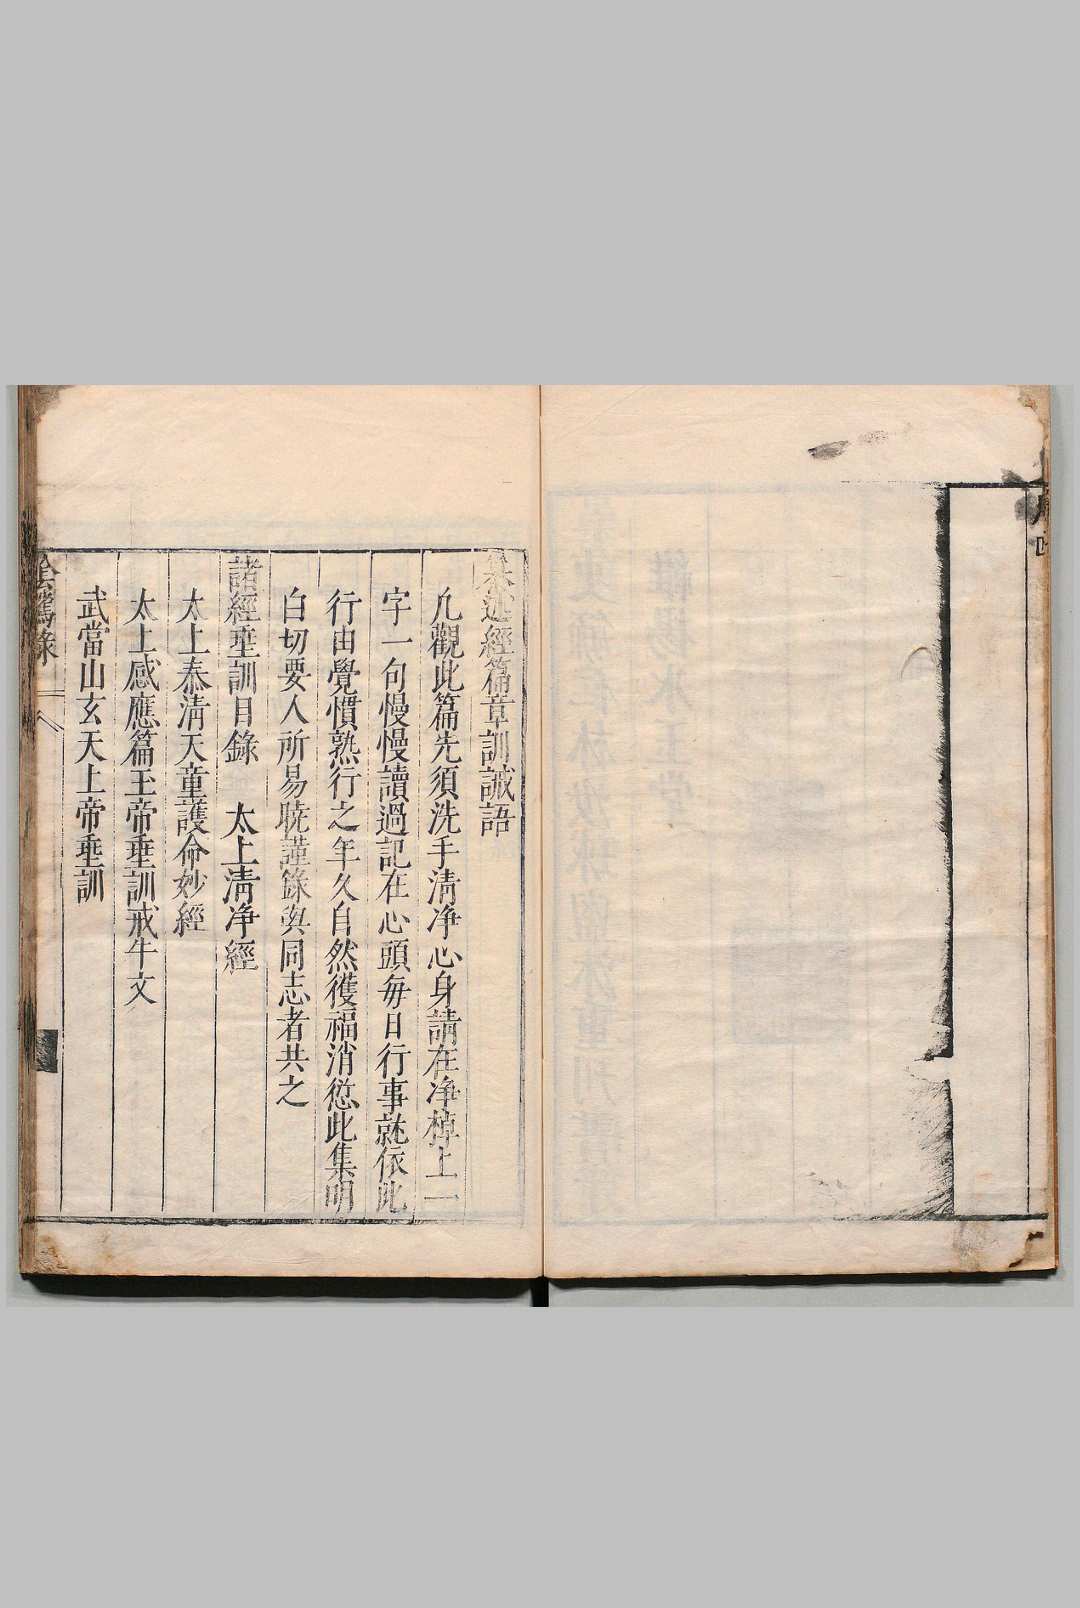 纂述經篇章訓誡語
凢觀此篇先須洗手清净心身請在净棹上一
字一句慢慢讀過記在心頭每日行事就依此
行由覺慣熟行之年久自然獲福消愆此集明
白切要人所易曉謹錄與同志者共之
諸經埀訓目錄　太上清净經
太上泰清天童護命妙經
太上感應篇玉帝埀訓戒牛文
武當山玄天上帝埀訓
陰騭錄